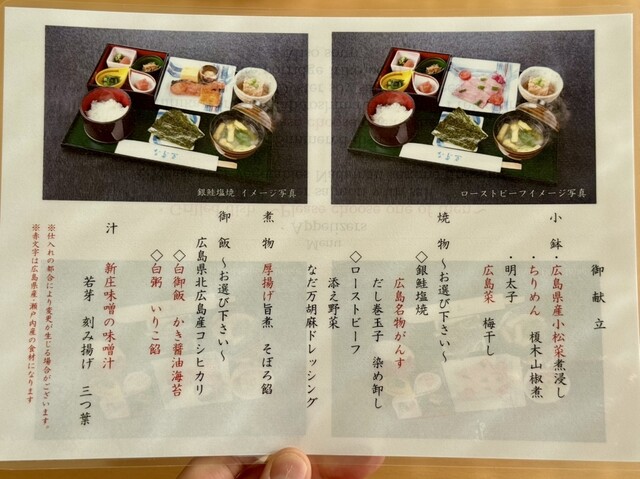 銀鮭塩焼 イメージ写真
ローストビーフイメージ写真
御献立
小鉢・広島県産小松菜煮浸し
・ちりめん 榎木山椒煮
・明太子
広島菜 梅干し
焼物～お選び下さい～
◇銀鮭塩焼
広島名物がんす
だし巻玉子 染め卸し
◇ローストビーフ
添え野菜
なだ万胡麻ドレッシング
煮物 厚揚げ旨煮 そぼろ餡
御飯～お選び下さい～
広島県北広島産コシヒカリ
◇白御飯 かき醤油海苔
◇白粥 いりこ餡
汁
新庄味噌の味噌汁
若芽 刻み揚げ 三つ葉
※仕入れの都合により変更が生じる場合がございます。
※赤文字は広島県産、瀬戸内産の食材になります